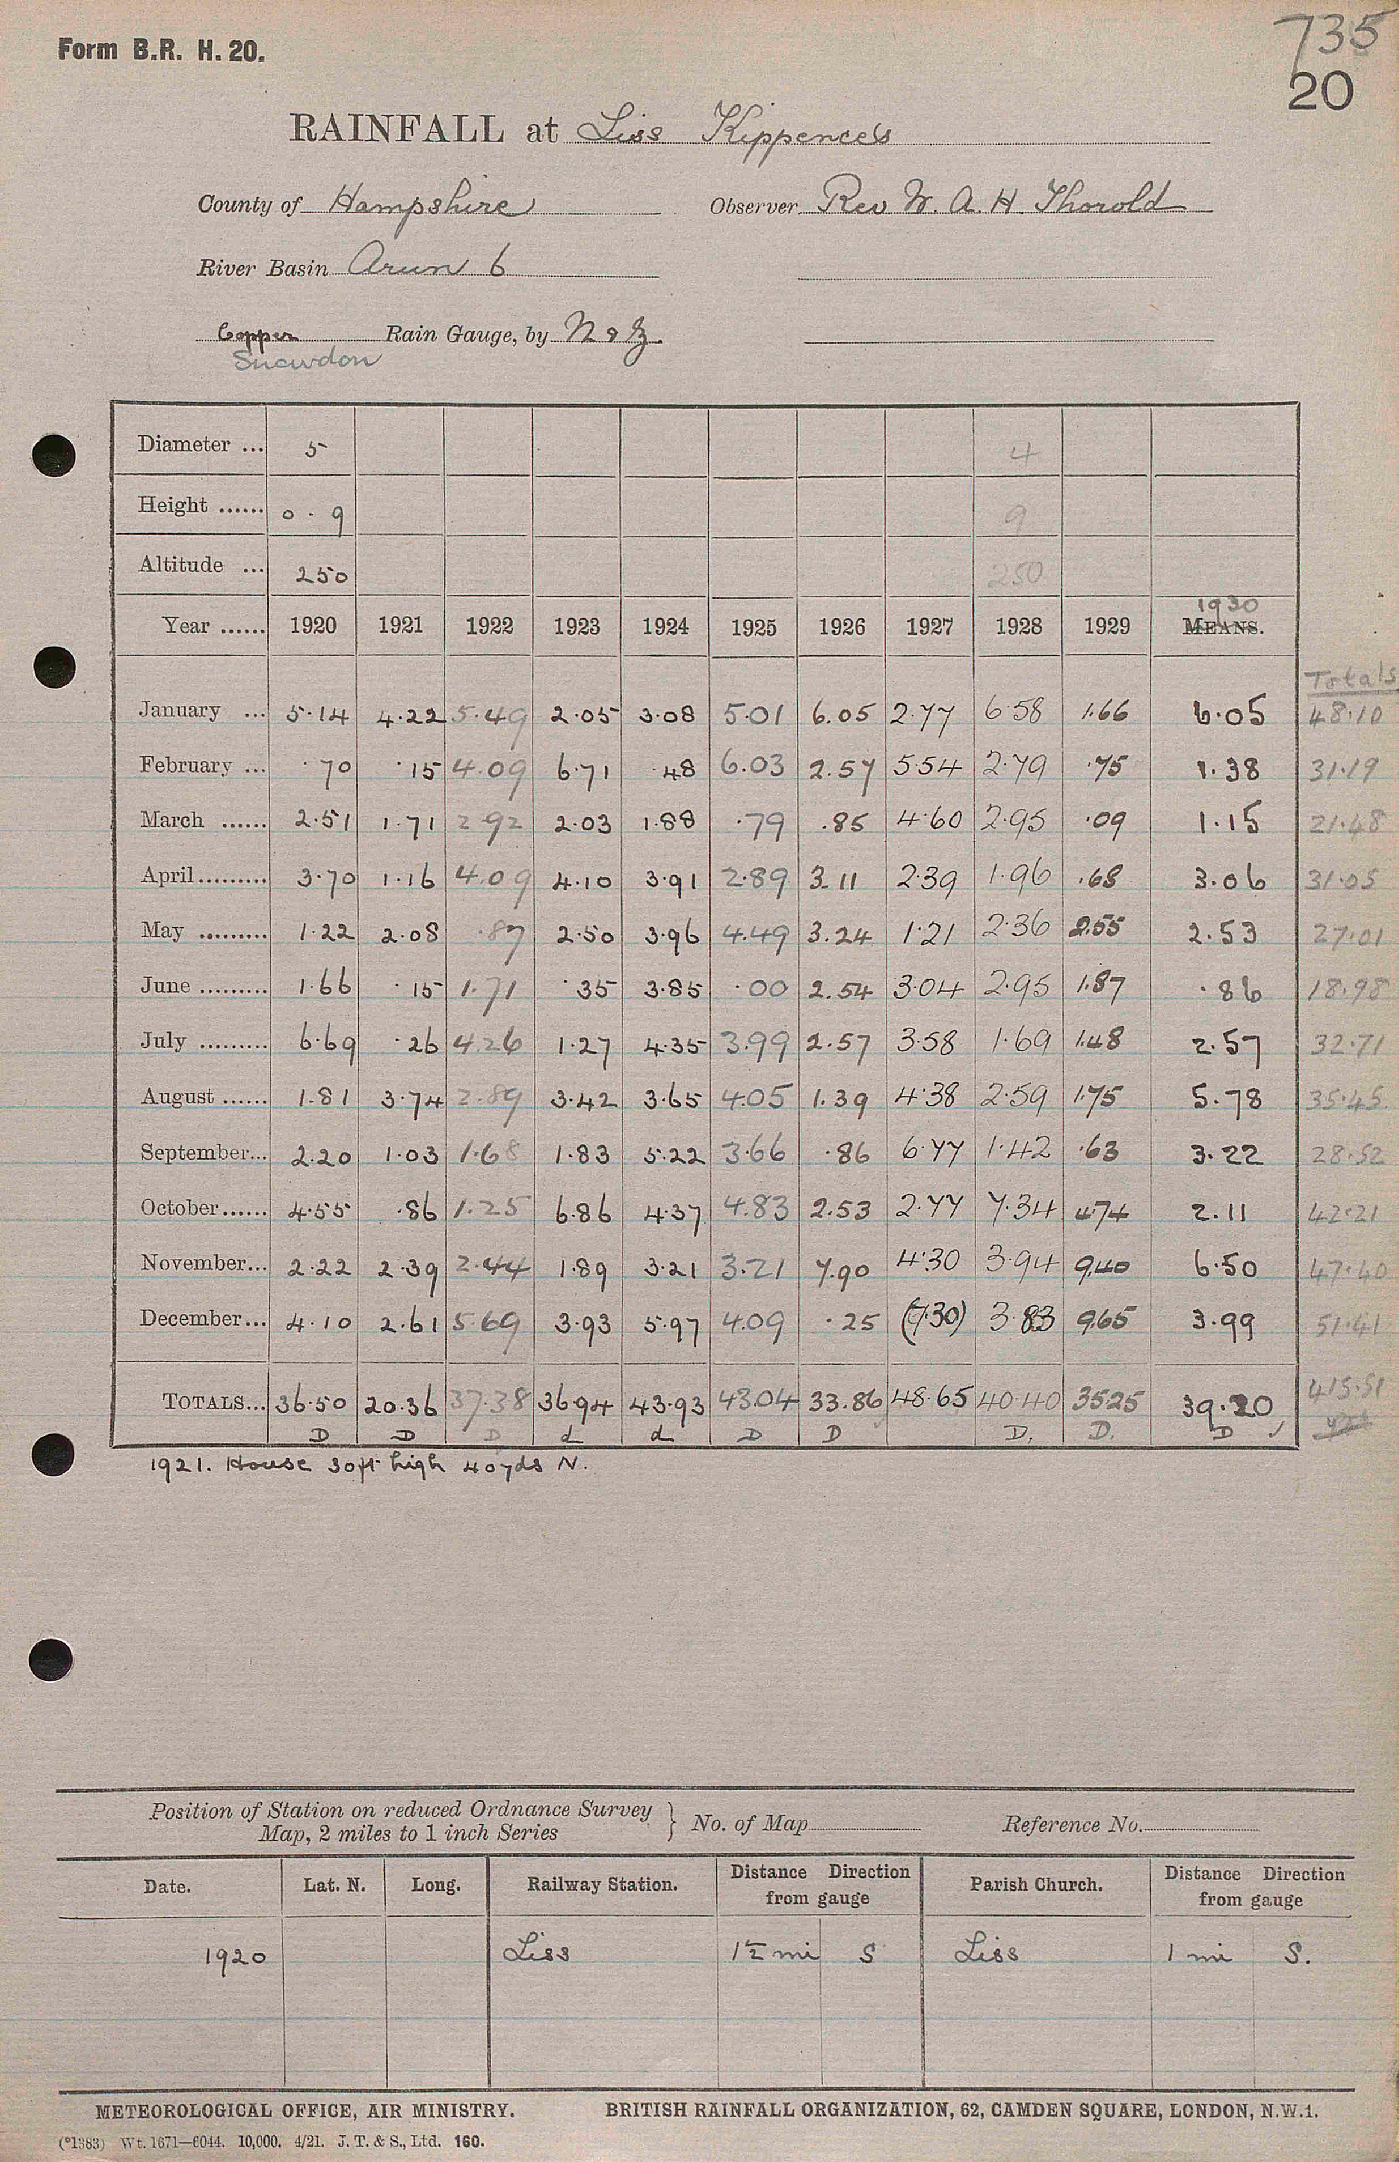 Form B.R. H. 20.
735
20
RAINFALL at Liss Kippences
County of Hampshire Observer Rev W. A. H. Thorold
River Basin Arun 6
Copper Rain Gauge, by N & Z
Snowdon
Diameter ... 5 4
Height ...... 0 . 9 9
Altitude ... 250 250
1930
Year ...... 1920 1921 1922 1923 1924 1925 1926 1927 1928 1929 MEANS.
Totals
January ... 5.14 4.22 5.49 2.05 3.08 5.01 6.05 2.77 6.58 1.66 6.05 48.10
February ... .70 .15 4.09 6.71 .48 6.03 2.57 5.54 2.79 .75 1.38 31.19
March ...... 2.51 1.71 2.92 2.03 1.88 .79 .85 4.60 2.95 .09 1.15 21.48
April ......... 3.70 1.16 4.09 4.10 3.91 2.89 3.11 2.39 1.96 .68 3.06 31.05
May ......... 1.22 2.08 .87 2.50 3.96 4.49 3.24 1.21 2.36 2.55 2.53 27.01
June ......... 1.66 .15 1.71 .35 3.85 .00 2.54 3.04 2.95 1.87 .86 18.98
July ......... 6.69 .26 4.26 1.27 4.35 3.99 2.57 3.58 1.69 1.48 2.57 32.71
August ...... 1.81 3.74 2.89 3.42 3.65 4.05 1.39 4.38 2.59 1.75 5.78 35.45
September... 2.20 1.03 1.68 1.83 5.22 3.66 .86 6.77 1.42 .63 3.22 28.52
October...... 4.55 .86 1.25 6.86 4.37 4.83 2.53 2.77 7.34 4.74 2.11 42.21
November... 2.22 2.39 2.44 1.89 3.21 3.21 7.90 4.30 3.94 9.40 6.50 47.40
December... 4.10 2.61 5.69 3.93 5.97 4.09 .25 (7.30) 3.83 9.65 3.99 51.41
TOTALS... 36.50 20.36 37.38 36.94 43.93 43.04 33.86 48.65 40.40 35.25 39.20 415.51
D D D d d D D D. D. D
1921. House 30ft high 40yds N.
Position of Station on reduced Ordnance Survey Map, 2 miles to 1 inch Series } No. of Map Reference No.
Date. Lat. N. Long. Railway Station. Distance Direction from gauge Parish Church. Distance Direction from gauge
1920 Liss 1½ mi S Liss 1 mi S.
METEOROLOGICAL OFFICE, AIR MINISTRY. BRITISH RAINFALL ORGANIZATION, 62, CAMDEN SQUARE, LONDON, N.W.1.
(*1383) Wt. 1671—6044. 10,000. 4/21. J. T. & S., Ltd. 160.